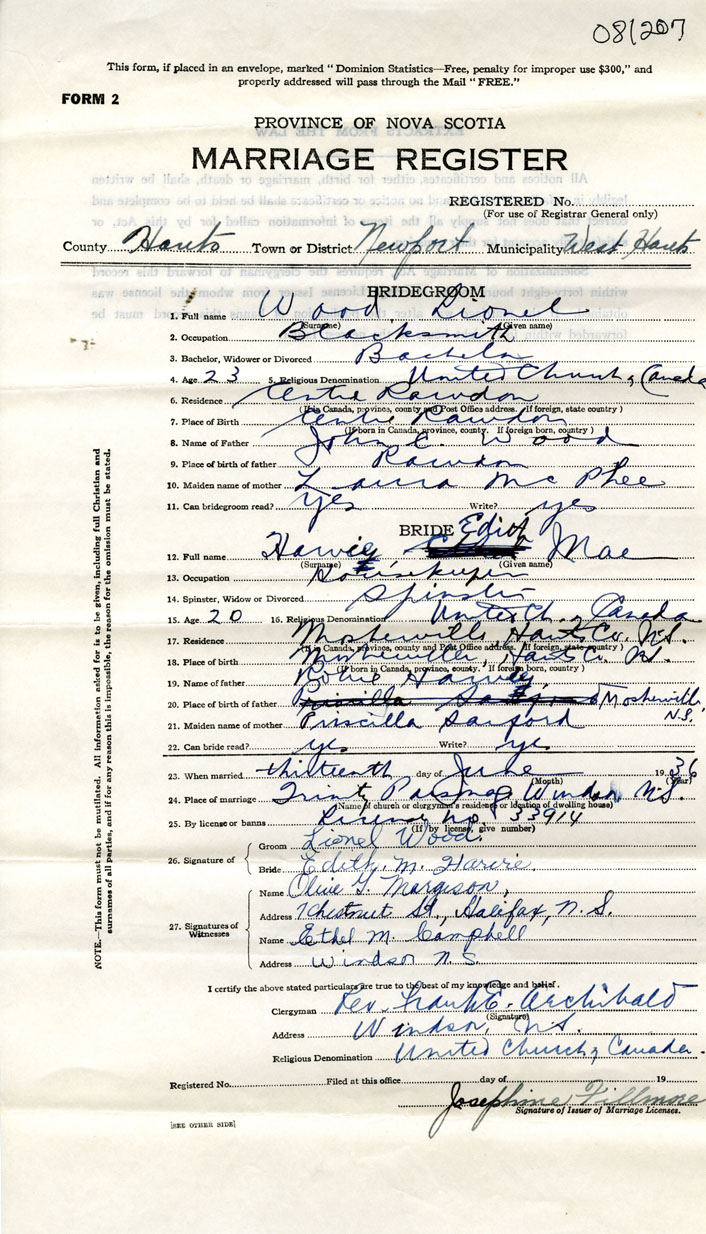 08/207
This form, if placed in an envelope, marked "Dominion Statistics—Free, penalty for improper use $300," and
properly addressed will pass through the Mail "FREE."
FORM 2
PROVINCE OF NOVA SCOTIA
MARRIAGE REGISTER
REGISTERED No.
(For use of Registrar General only)
County Hants Town or District Newport Municipality West Hants
BRIDEGROOM
1. Full name Wood Lionel
(Surname) (Given name)
2. Occupation Blacksmith
3. Bachelor, Widower or Divorced Bachelor
4. Age 23 5. Religious Denomination United Church of Canada
6. Residence Centre Rawdon
(If in Canada, province, county and Post Office address. If foreign, state country)
7. Place of Birth Centre Rawdon
(If born in Canada, province, county. If foreign born, country)
8. Name of Father John E. Wood
9. Place of birth of father Rawdon
10. Maiden name of mother Laura McPhee
11. Can bridegroom read? yes Write? yes
BRIDE
12. Full name Harvie Edith Mae
(Surname) (Given name)
13. Occupation Housekeeper
14. Spinster, Widow or Divorced Spinster
15. Age 20 16. Religious Denomination United Ch. of Canada
17. Residence Mosherville, Hants Co. N.S.
(If in Canada, province, county and Post Office address. If foreign, state country)
18. Place of birth Mosherville, Hants Co. N.S.
(If born in Canada, province, county. If foreign born, country)
19. Name of father Robie Harvie
20. Place of birth of father Priscilla Sanford Mosherville, N.S.
21. Maiden name of mother Priscilla Sanford
22. Can bride read? yes Write? yes
23. When married thirteenth day of June 1936
(Month) (Year)
24. Place of marriage Trinity Parsonage Windsor, N.S.
(Name of church or clergyman's residence or location of dwelling house)
25. By license or banns License No. 33914
(If by license, give number)
26. Signature of
Groom Lionel Wood.
Bride Edith M. Harvie
27. Signatures of Witnesses
Name Olive G. Margeson,
Address 7 Chestnut St., Halifax, N.S.
Name Ethel M. Campbell
Address Windsor N.S.
I certify the above stated particulars are true to the best of my knowledge and belief.
Clergyman Rev. Frank E. Archibald
(Signature)
Address Windsor, N.S.
Religious Denomination United Church of Canada.
Registered No. Filed at this office day of 19
Josephine Fillmore
Signature of Issuer of Marriage Licenses.
[SEE OTHER SIDE]
NOTE.—This form must not be mutilated. All information asked for is to be given, including full Christian and
surnames of all parties, and if for any reason this is impossible, the reason for the omission must be stated.